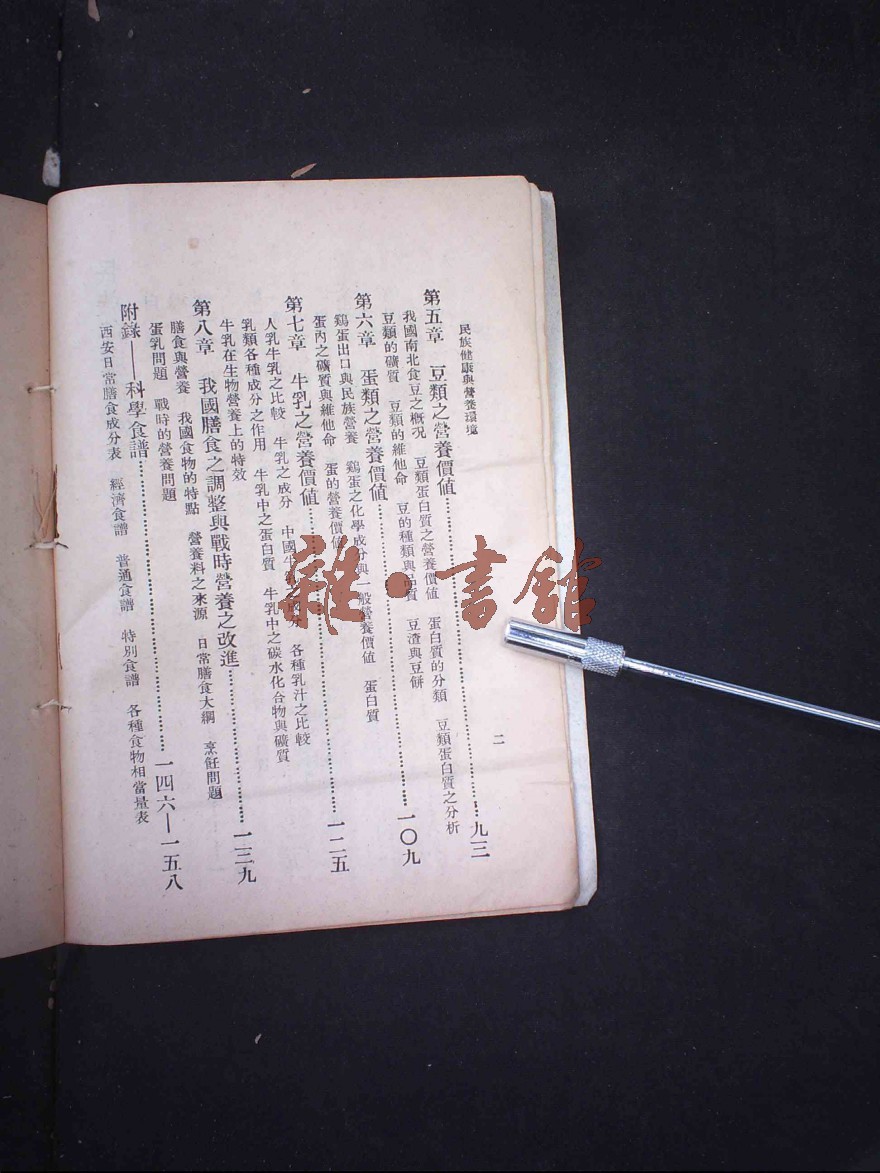 民族健康與營養環境
二
第五章　豆類之營養價值……九三
我國南北食豆之概况　豆類蛋白質之營養價值　蛋白質的分類　豆類蛋白質之分析
豆類的礦質　豆類的維他命　豆的種類與品質　豆渣與豆餅
第六章　蛋類之營養價值……一〇九
鷄蛋出口與民族營養　鷄蛋之化學成分與一般營養價值　蛋白質
蛋內之礦質與維他命　蛋的營養價值
第七章　牛乳之營養價值……一二五
人乳牛乳之比較　牛乳之成分　中國牛乳之成分　各種乳汁之比較
乳類各種成分之作用　牛乳中之蛋白質　牛乳中之碳水化合物與礦質
牛乳在生物營養上的特效
第八章　我國膳食之調整與戰時營養之改進……一三九
膳食與營養　我國食物的特點　營養料之來源　日常膳食大綱　烹飪問題
蛋乳問題　戰時的營養問題
附錄——科學食譜……一四六—一五八
西安日常膳食成分表　經濟食譜　普通食譜　特別食譜　各種食物相當量表
雜·書館